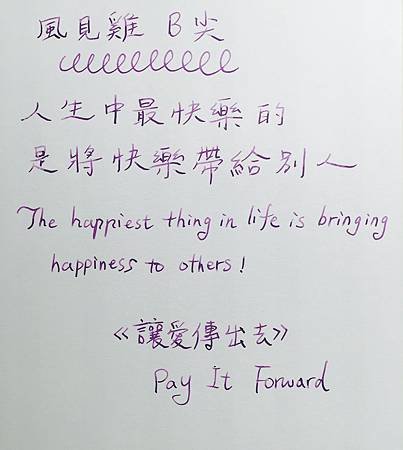 風見雞 B尖
人生中最快樂的
是將快樂帶給別人
The happiest thing in life is bringing
happiness to others!
《讓愛傳出去》
Pay It Forward